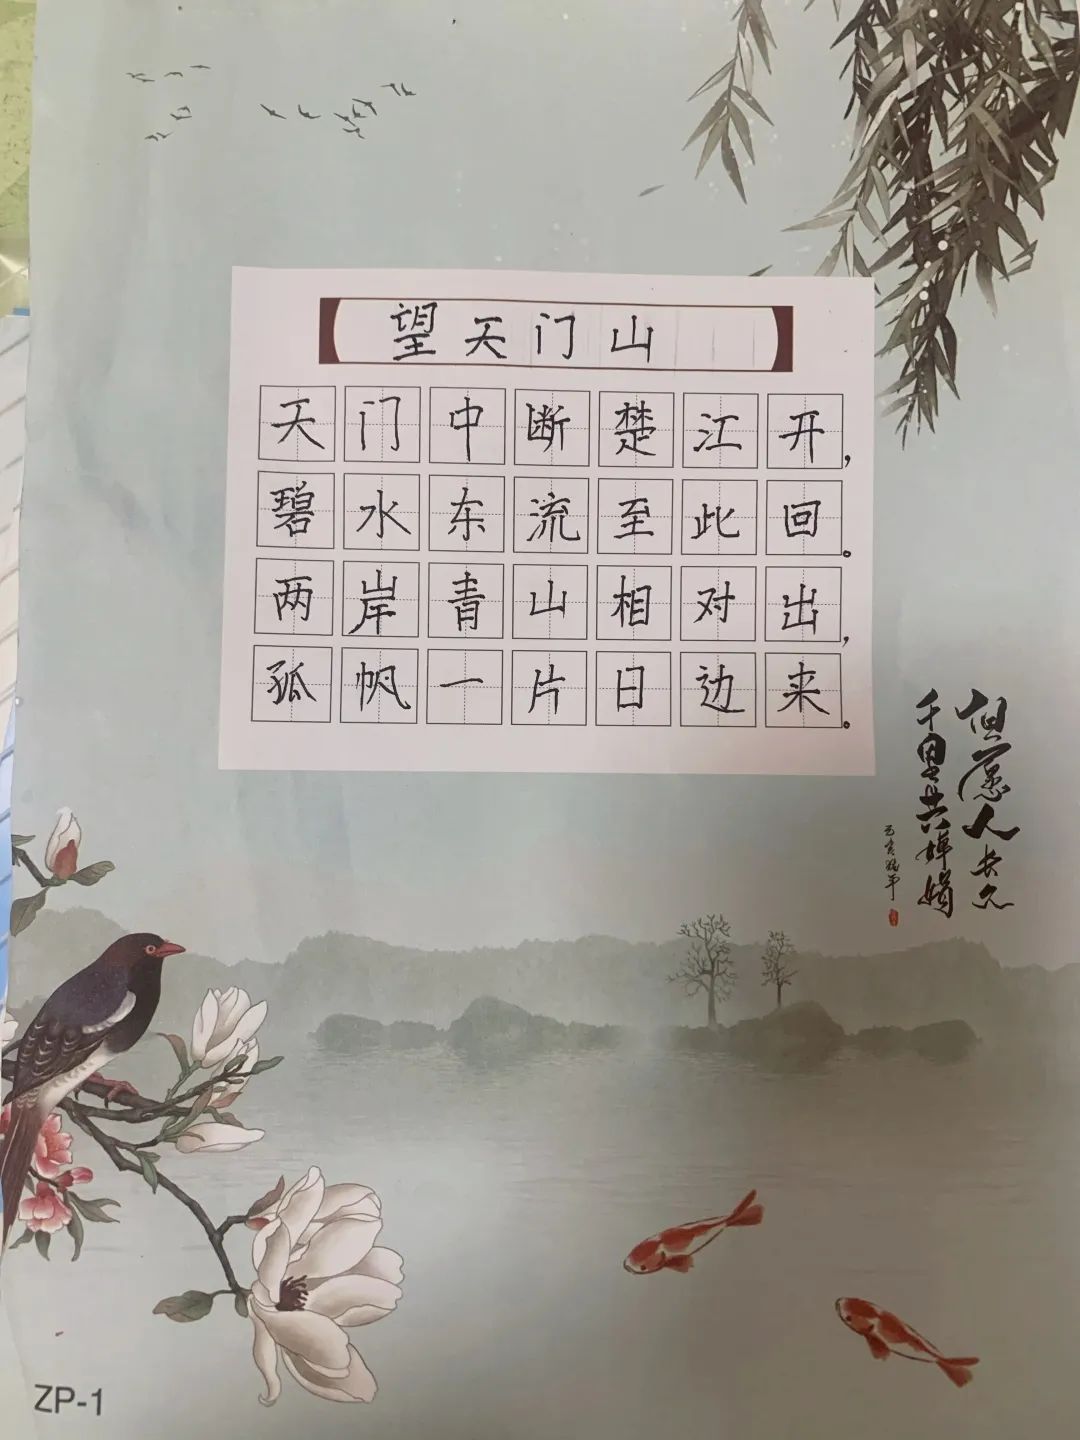 望天门山
天门中断楚江开，
碧水东流至此回。
两岸青山相对出，
孤帆一片日边来。
但愿人长久
千里共婵娟
ZP-1